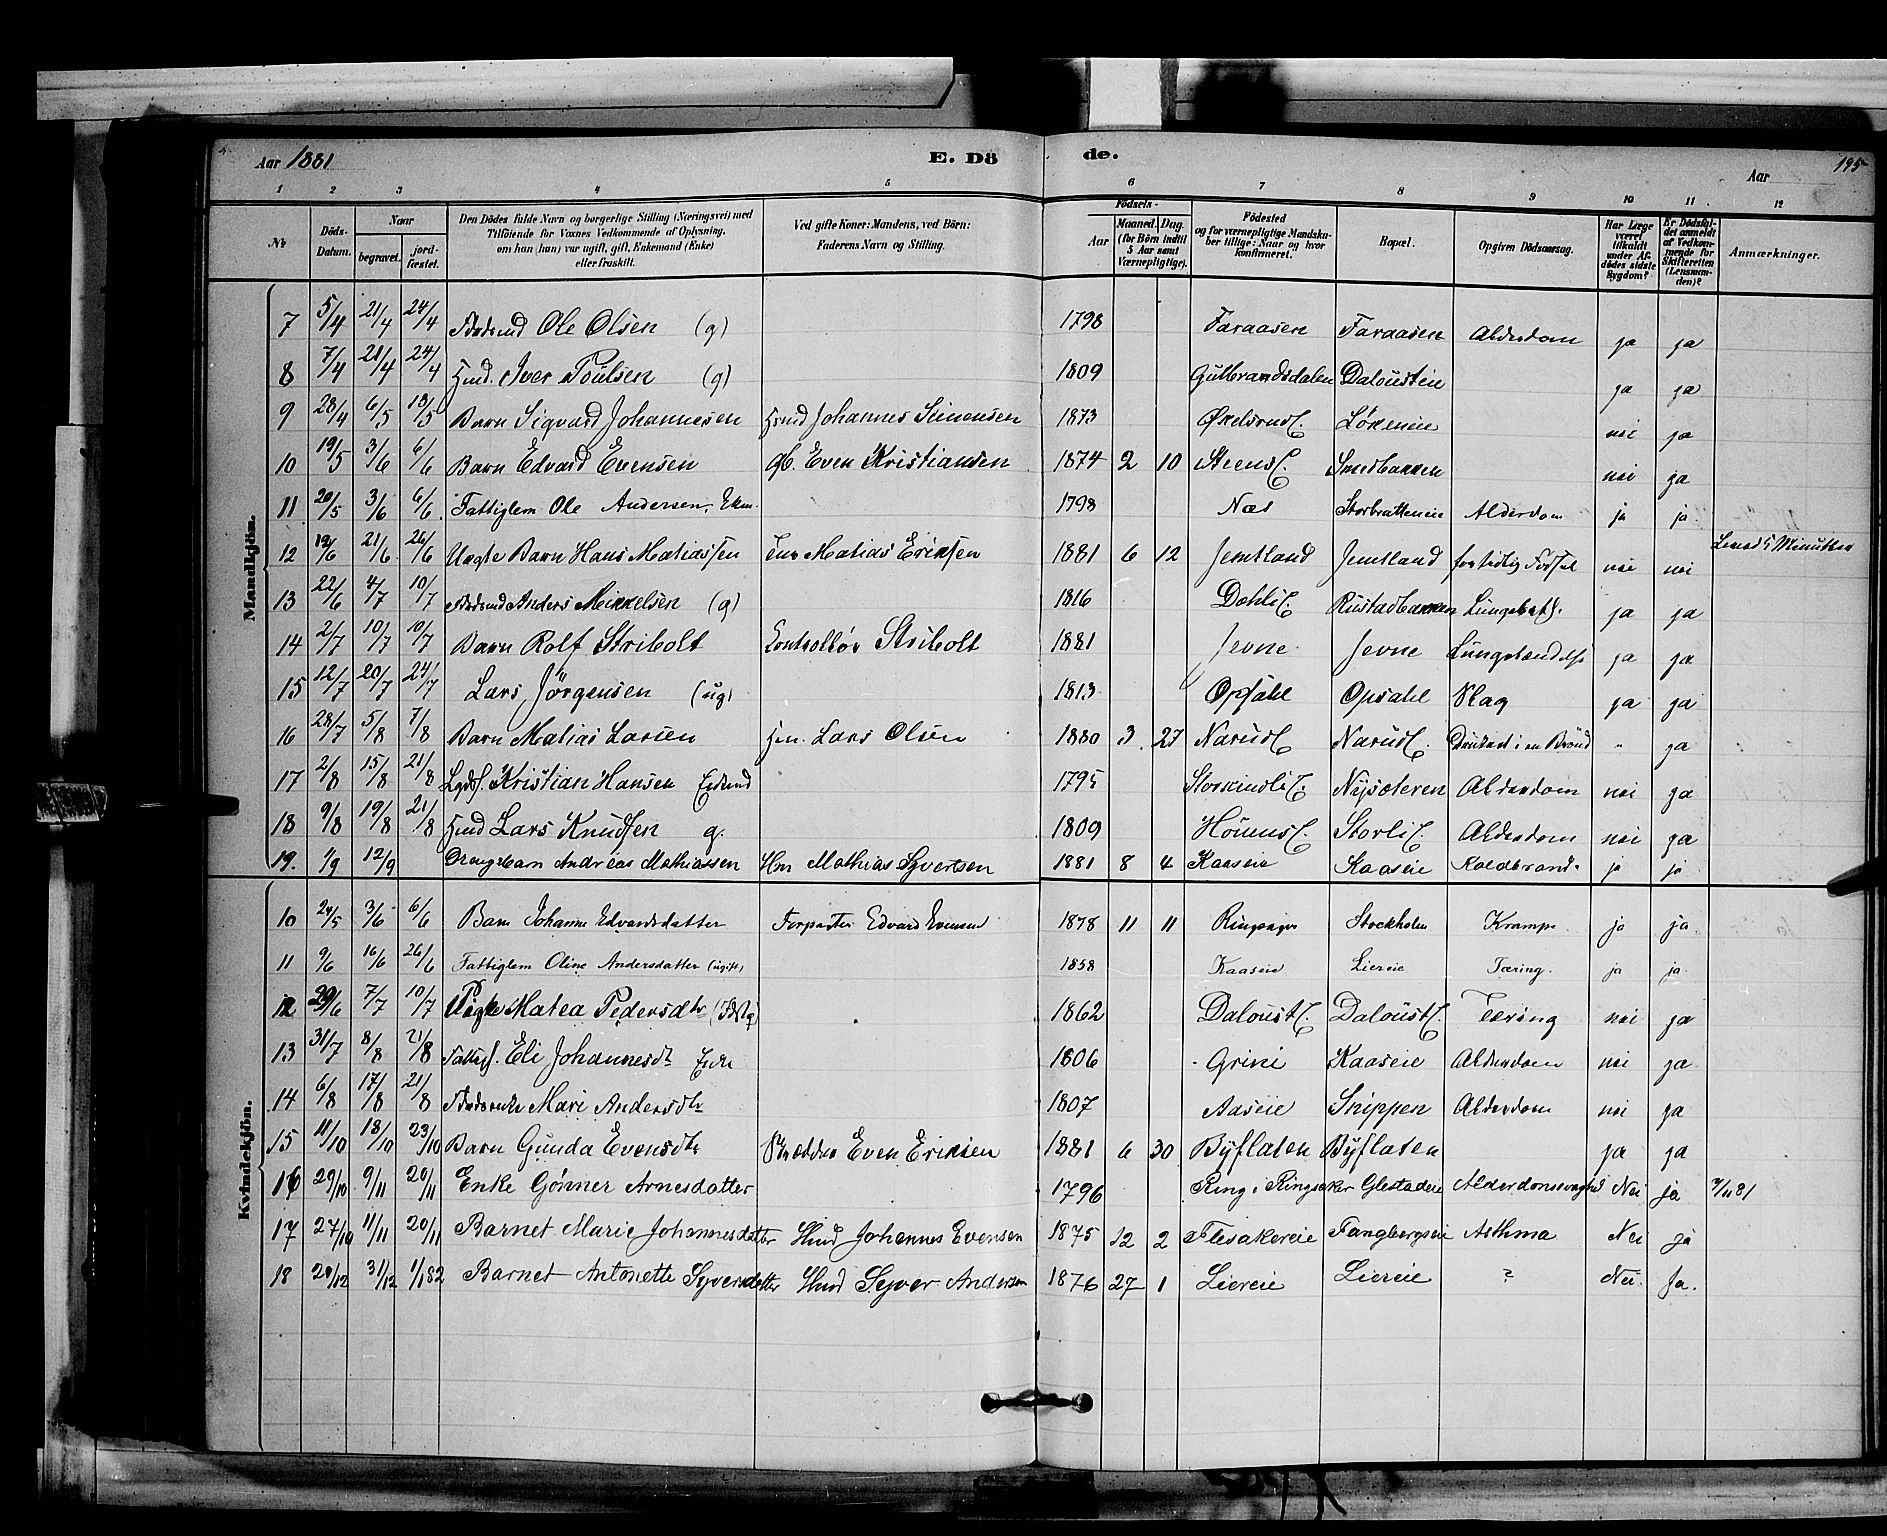 Aar 1881 E. Dö de. Aar 195
1 2 3 4 5 6 7 8 9 10 11 12
No
Döds-Datum.
Naar begravet. jord-fæstet.
Den Dödes fulde Navn og borgerlige Stilling (Næringsvei) med Tilföiende for Voxnes Vedkommende af Oplysning, om han (hun) var ugift, gift, Enkemand (Enke) eller fraskilt.
Ved gifte Koner: Mandens, ved Börn: Faderens Navn og Stilling.
Födsels-
Aar Maaned. Dag. (for Börn indtil 5 Aar samt Værnepligtige).
Födested og for værnepligtige Mandskaber tillige: Naar og hvor konfirmeret.
Bopæl.
Opgiven Dödsaarsag.
Har Læge været tilkaldt under Afdödes sidste Sygdom?
Er Dödsfaldet anmeldt af Vedkommende for Skifteretten (Lensmanden)?
Anmærkninger.
Mandkjön.
7 5/4 21/4 24/4 Ole Olsen (g) 1798 Faraasen Faraasen Alderdom ja ja
8 7/4 21/4 24/4 Hmd. Iver Poulsen (g) 1809 Gulbrandsdalen Daloustein ja ja
9 28/4 6/5 13/5 Barn Sigvard Johannesen Hmd Johannes Simensen 1873 Økelsrud Løkeneie nei ja
10 19/5 3/6 6/6 Barn Edvard Evensen gb. Even Kristiansen 1874 2 10 Steens Smedbakken nei ja
11 20/5 3/6 6/6 Fattiglem Ole Andersen, Ekm. 1798 Næs Storbratteneie Alderdom ja ja
12 12/6 21/6 26/6 Uægte Barn Hans Matiassen Matias Eriksen 1881 6 12 Jemtland Jemtland for tidlig Fødsel nei nei Leved 5 Minutter
13 22/6 4/7 10/7 Anders Mikkelsen (g) 1816 Dohli Rustadbakken Lungebet. ja ja
14 2/7 10/7 10/7 Barn Rolf Stribolt Kontrollør Stribolt 1881 Jevne Jevne Lungebændelse ja ja
15 12/7 20/7 24/7 Lars Jörgensen (ug) 1813 Opsahl Opsahl Slag ja ja
16 28/7 5/8 7/8 Barn Matias Larsen Hm. Lars Olsen 1880 3 27 Narud Narud Druknet i en Brønd " ja
17 2/8 15/8 21/8 Lgdsl. Kristian Hansen Enkemd 1795 Nysæteren Alderdom nei ja
18 9/8 19/8 21/8 Hmd Lars Knudsen g. 1809 Storli Alderdom nei ja
19. 1/9 12/9 Drengebarn Andreas Mathiassen Hm Mathias Syvertsen 1881 8 4 Kaaseie Kaaseie Koldbrand. ja ja
Kvindekjön.
10 24/5 3/6 6/6 Barn Johanne Edvardsdatter Forpagter Edvard Evensen 1878 11 11 Ringsager Stockholm Krampe ja ja
11 9/6 16/6 26/6 Fattiglem Oline Andersdatter (ugift) 1858 Kaaseie Liereie Tæring. ja ja
12 29/6 7/7 10/7 Pige Matea Pedersdtr 1862 Daloust. Daloust. Tæring nei ja
13 31/7 8/8 21/8 Fattigl. Eli Johannesdt Enke 1806 Grini Kaaseie Alderdom nei ja
14 6/8 17/8 21/8 Mari Andersdtr 1807 Aaseie Snippen Alderdom nei ja
15 11/10 18/10 23/10 Barn Gunda Evensdtr Skrædder Even Eriksen 1881 6 30 Byflaten Byflaten ja ja
16 29/10 9/11 20/11 Enke Gönner Arnesdatter 1796 Ring i Ringsaker Glestadeie Alderdomssvaghed Nei ja 9/11 81
17 27/10 11/11 20/11 Barnet Marie Johannesdatter Hmd Johannes Evensen 1875 12 2 Flesakereie Fangbergseie Asthma Nei ja
18 20/12 31/12 1/1 82 Barnet Antonette Syversdatter Hmd Syver Andersen 1876 27 1 Liereie Liereie ? Nei. Ja.